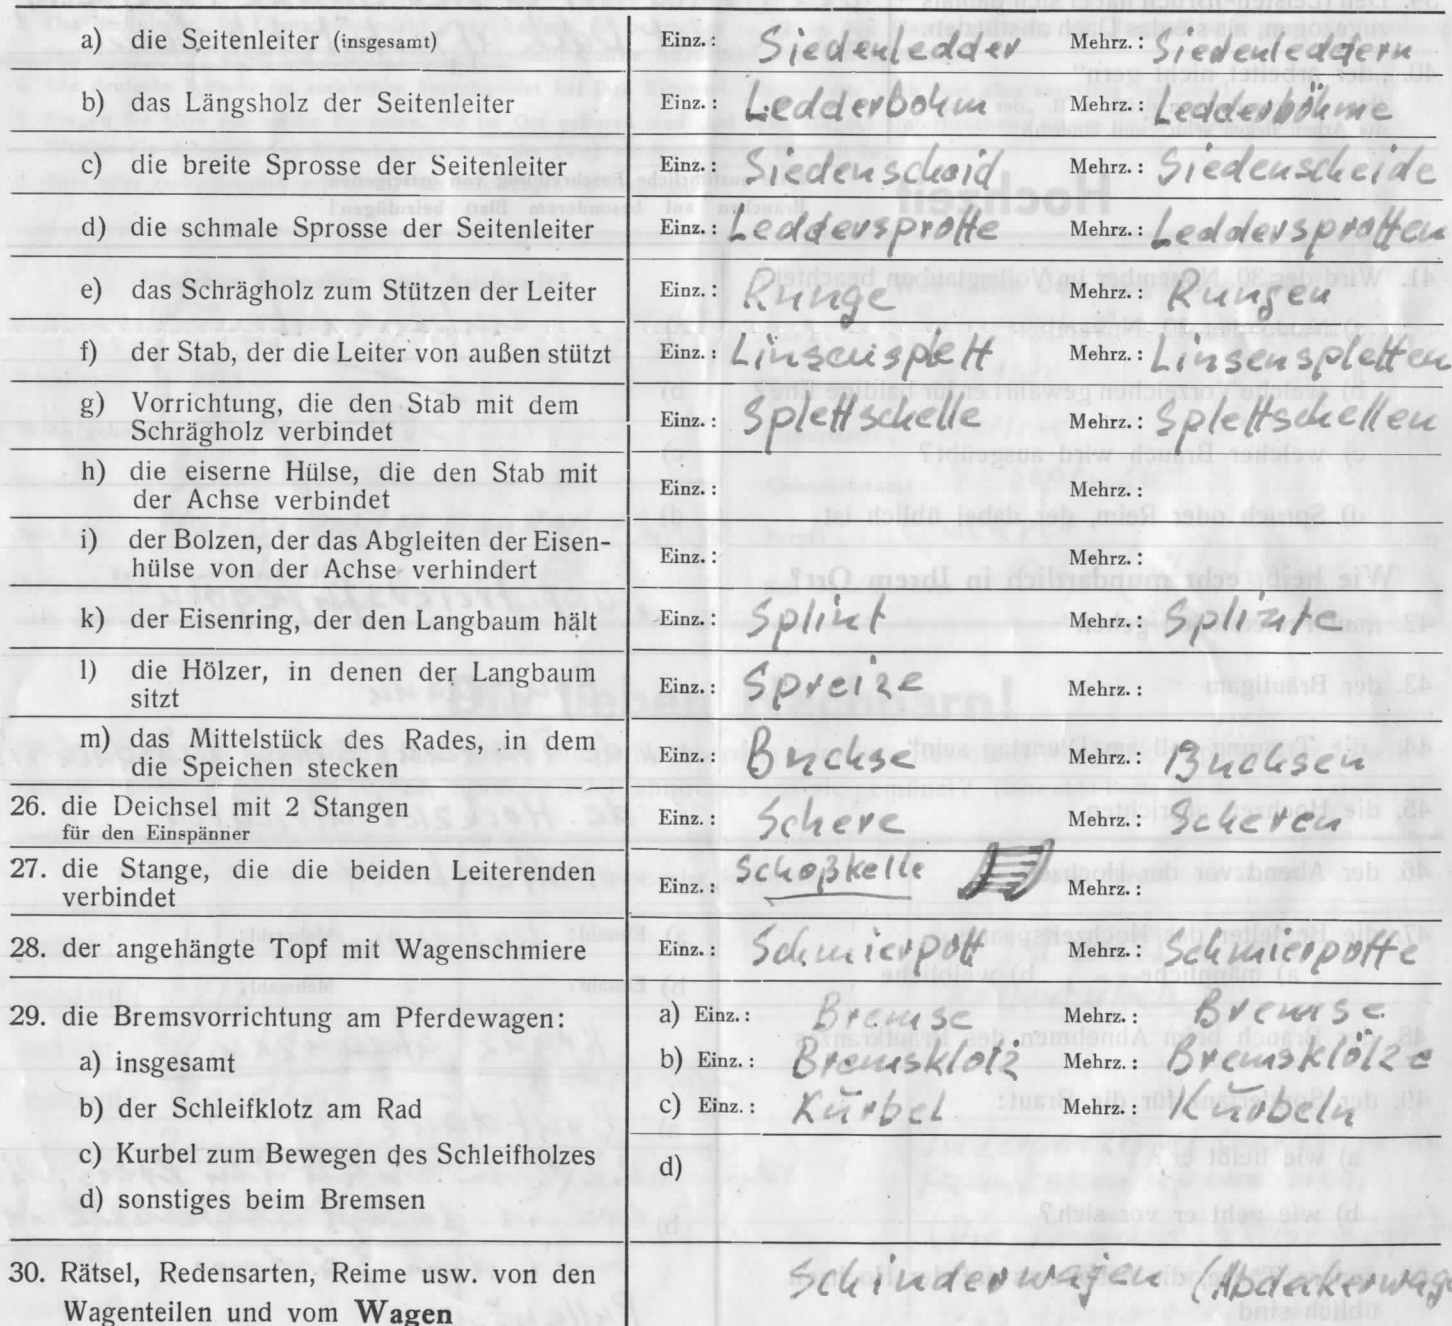 a) die Seitenleiter (insgesamt) Einz.: Siedenledder Mehrz.: Siedenleddern
b) das Längsholz der Seitenleiter Einz.: Ledderbohm Mehrz.: Ledderböhme
c) die breite Sprosse der Seitenleiter Einz.: Siedenscheid Mehrz.: Siedenscheide
d) die schmale Sprosse der Seitenleiter Einz.: Leddersprotte Mehrz.: Leddersprotten
e) das Schrägholz zum Stützen der Leiter Einz.: Runge Mehrz.: Rungen
f) der Stab, der die Leiter von außen stützt Einz.: Linsensplett Mehrz.: Linsenspletten
g) Vorrichtung, die den Stab mit dem
Schrägholz verbindet Einz.: Splettschelle Mehrz.: Splettschellen
h) die eiserne Hülse, die den Stab mit
der Achse verbindet Einz.: Mehrz.:
i) der Bolzen, der das Abgleiten der Eisen-
hülse von der Achse verhindert Einz.: Mehrz.:
k) der Eisenring, der den Langbaum hält Einz.: Splint Mehrz.: Splinte
l) die Hölzer, in denen der Langbaum
sitzt Einz.: Spreize Mehrz.:
m) das Mittelstück des Rades, in dem
die Speichen stecken Einz.: Buchse Mehrz.: Buchsen
26. die Deichsel mit 2 Stangen Einz.: Schere Mehrz.: Scheren
für den Einspänner
27. die Stange, die die beiden Leiterenden
verbindet Einz.: Schoßkelle Mehrz.:
28. der angehängte Topf mit Wagenschmiere Einz.: Schmierpott Mehrz.: Schmierpotte
29. die Bremsvorrichtung am Pferdewagen: a) Einz.: Bremse Mehrz.: Bremse
a) insgesamt b) Einz.: Bremsklotz Mehrz.: Bremsklötze
b) der Schleifklotz am Rad c) Einz.: Kurbel Mehrz.: Kurbeln
c) Kurbel zum Bewegen des Schleifholzes d)
d) sonstiges beim Bremsen
30. Rätsel, Redensarten, Reime usw. von den Schinderwagen (Abdeckerwage
Wagenteilen und vom Wagen